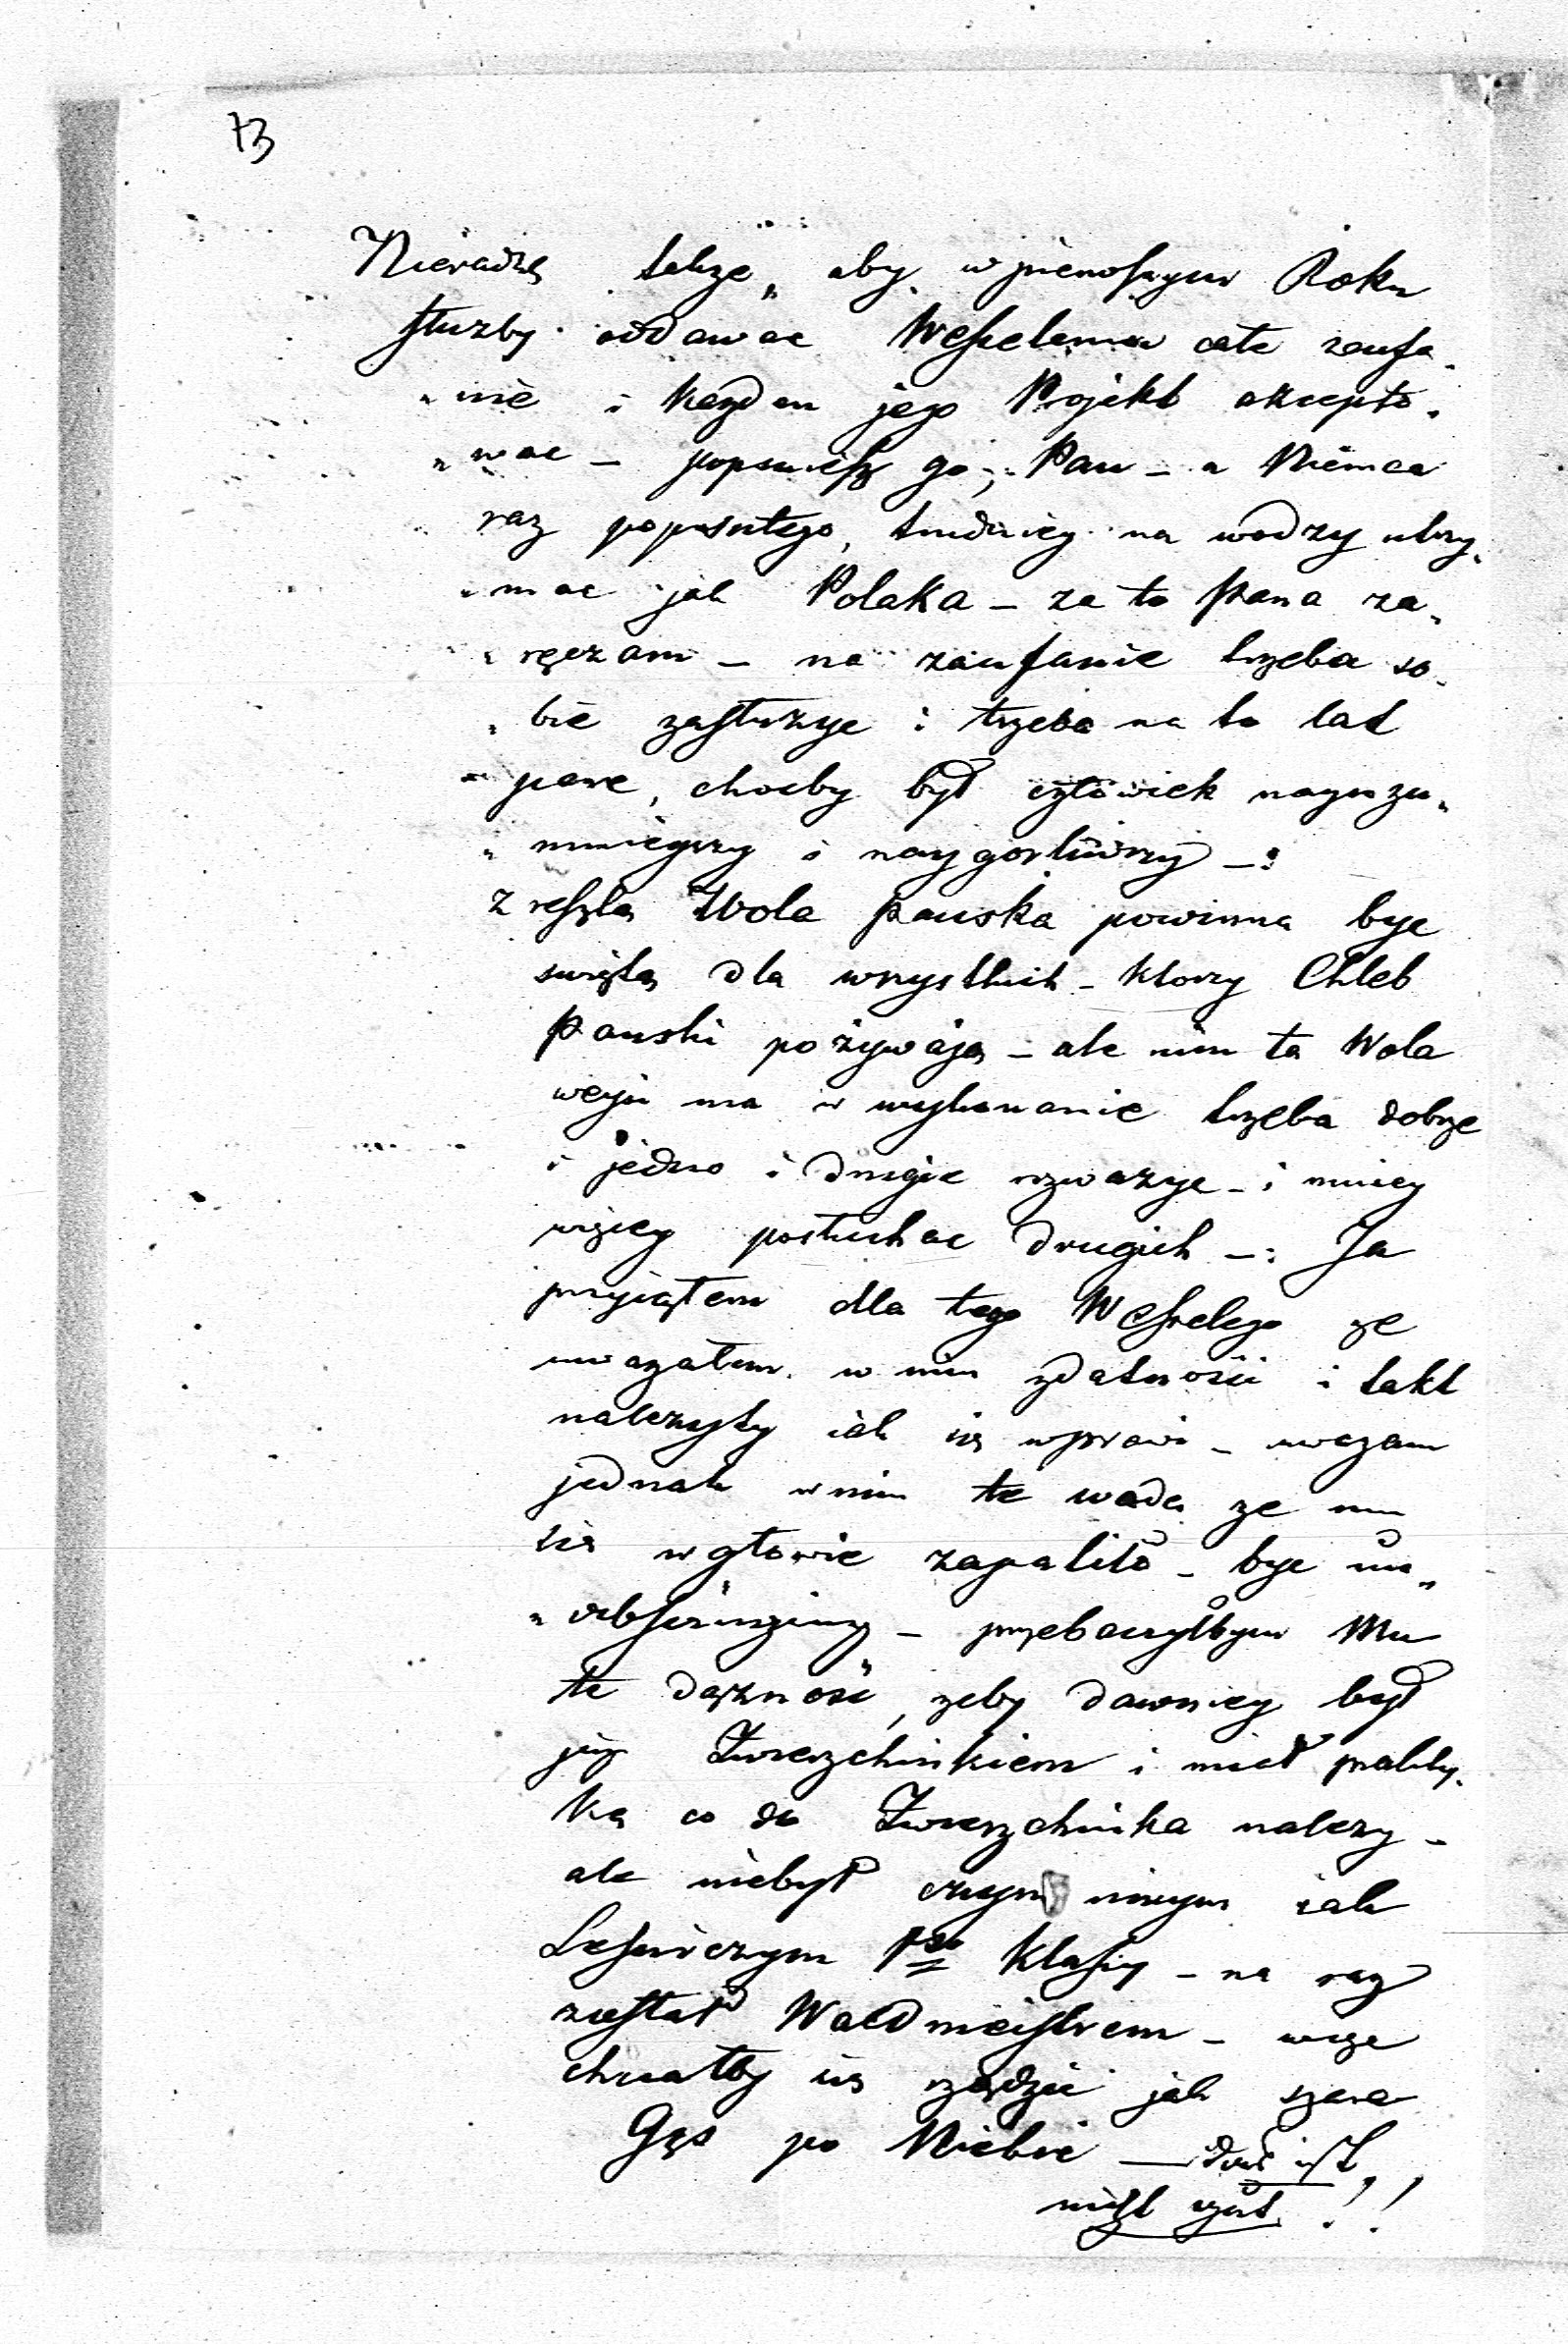 73
Nieradzę także, aby w pierwszym Roku
służby oddawac Wesselemu całe zaufa„
„nie i każden jego Projekt akcepto„
„wac – popsuiesz go, Pan – a Niemca
raz popsutego, trudniey na wodzy utrzy„
„mac jak Polaka – za to Pana za„
„ręczam – na zaufanie trzeba so„
„bie zasłużyc i trzeba na to lat
pare, chocby był człowiek nayrozu„
„mnieyszy i naygorliwszy –:
z resztą Wola pańska powinna byc
swiętą dla wszystkich – ktorzy Chleb
Pański pożywają – ale nim ta Wola
weyść ma w wykonanie trzeba dobrze
i jedno i drugie rozwazyc – i mniey
więcey posłuchac drugich –: Ja
przyiąłem dla tego Wesselego ze
uwazałem w nim zdatności i takt
nalezyty iak się wprawi – uwazam
jednak w nim te wadę ze mu
się w głowie zapaliło – byc un„
„ – przebaczyłbym Mu
te dążność, zeby dawniey był
juz Zwierzchnikiem i miał prakty„
ką co do Zwierzchnika nalezy –
ale niebył czym innym iak
Lesniczym Klassy – na raz
został Waldmeistrem – więc
chciałby się rządzić jak szara
Gęs po Niebie — das ist
nicht gut !!